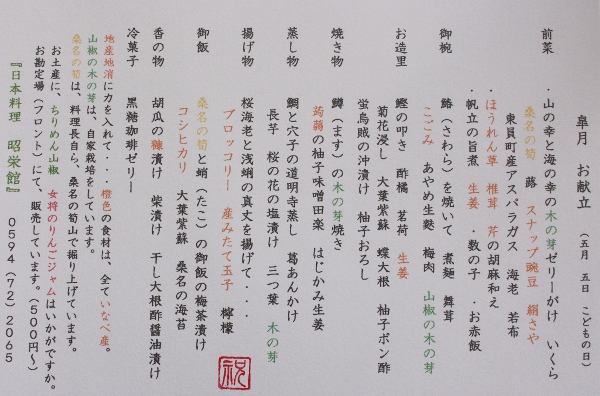 皐月　お献立　（五月　五日　こどもの日）
前菜　・山の幸と海の幸の木の芽ゼリーがけ　いくら
桑名の筍　蕗　スナップ豌豆　絹さや
東員町産アスパラガス　海老　若布
・ほうれん草　椎茸　芹の胡麻和え
・帆立の旨煮　生姜　・数の子　・お赤飯
御椀　鰆（さわら）を焼いて　煮麺　舞茸
こごみ　あやめ生麩　梅肉　山椒の木の芽
お造里　鰹の叩き　酢橘　茗荷　生姜
菊花浸し　大葉紫蘇　蝶大根　柚子ポン酢
蛍烏賊の沖漬け　柚子おろし
焼き物　鱒（ます）の木の芽焼き
蒟蒻の柚子味噌田楽　はじかみ生姜
蒸し物　鯛と穴子の道明寺蒸し　葛あんかけ
長芋　桜の花の塩漬け　三つ葉　木の芽
揚げ物　桜海老と浅蜊の真丈を揚げて・・・
ブロッコリー　産みたて玉子　檸檬
御飯　桑名の筍と蛸（たこ）の御飯の梅茶漬け
コシヒカリ　大葉紫蘇　桑名の海苔
香の物　胡瓜の糠漬け　柴漬け　干し大根酢醤油漬け
冷菓子　黒糖珈琲ゼリー
祝
地産地消に力を入れて・・・橙色の食材は、全ていなべ産。
山椒の木の芽は、自家栽培をしています。
桑名の筍は、料理長自ら、桑名の筍山で掘り上げています。
お土産に、ちりめん山椒　女将のりんごジャムはいかがですか。
お勘定場（フロント）にて、販売しています。（５００円～）
『日本料理　昭栄館』　０５９４（７２）２０６５